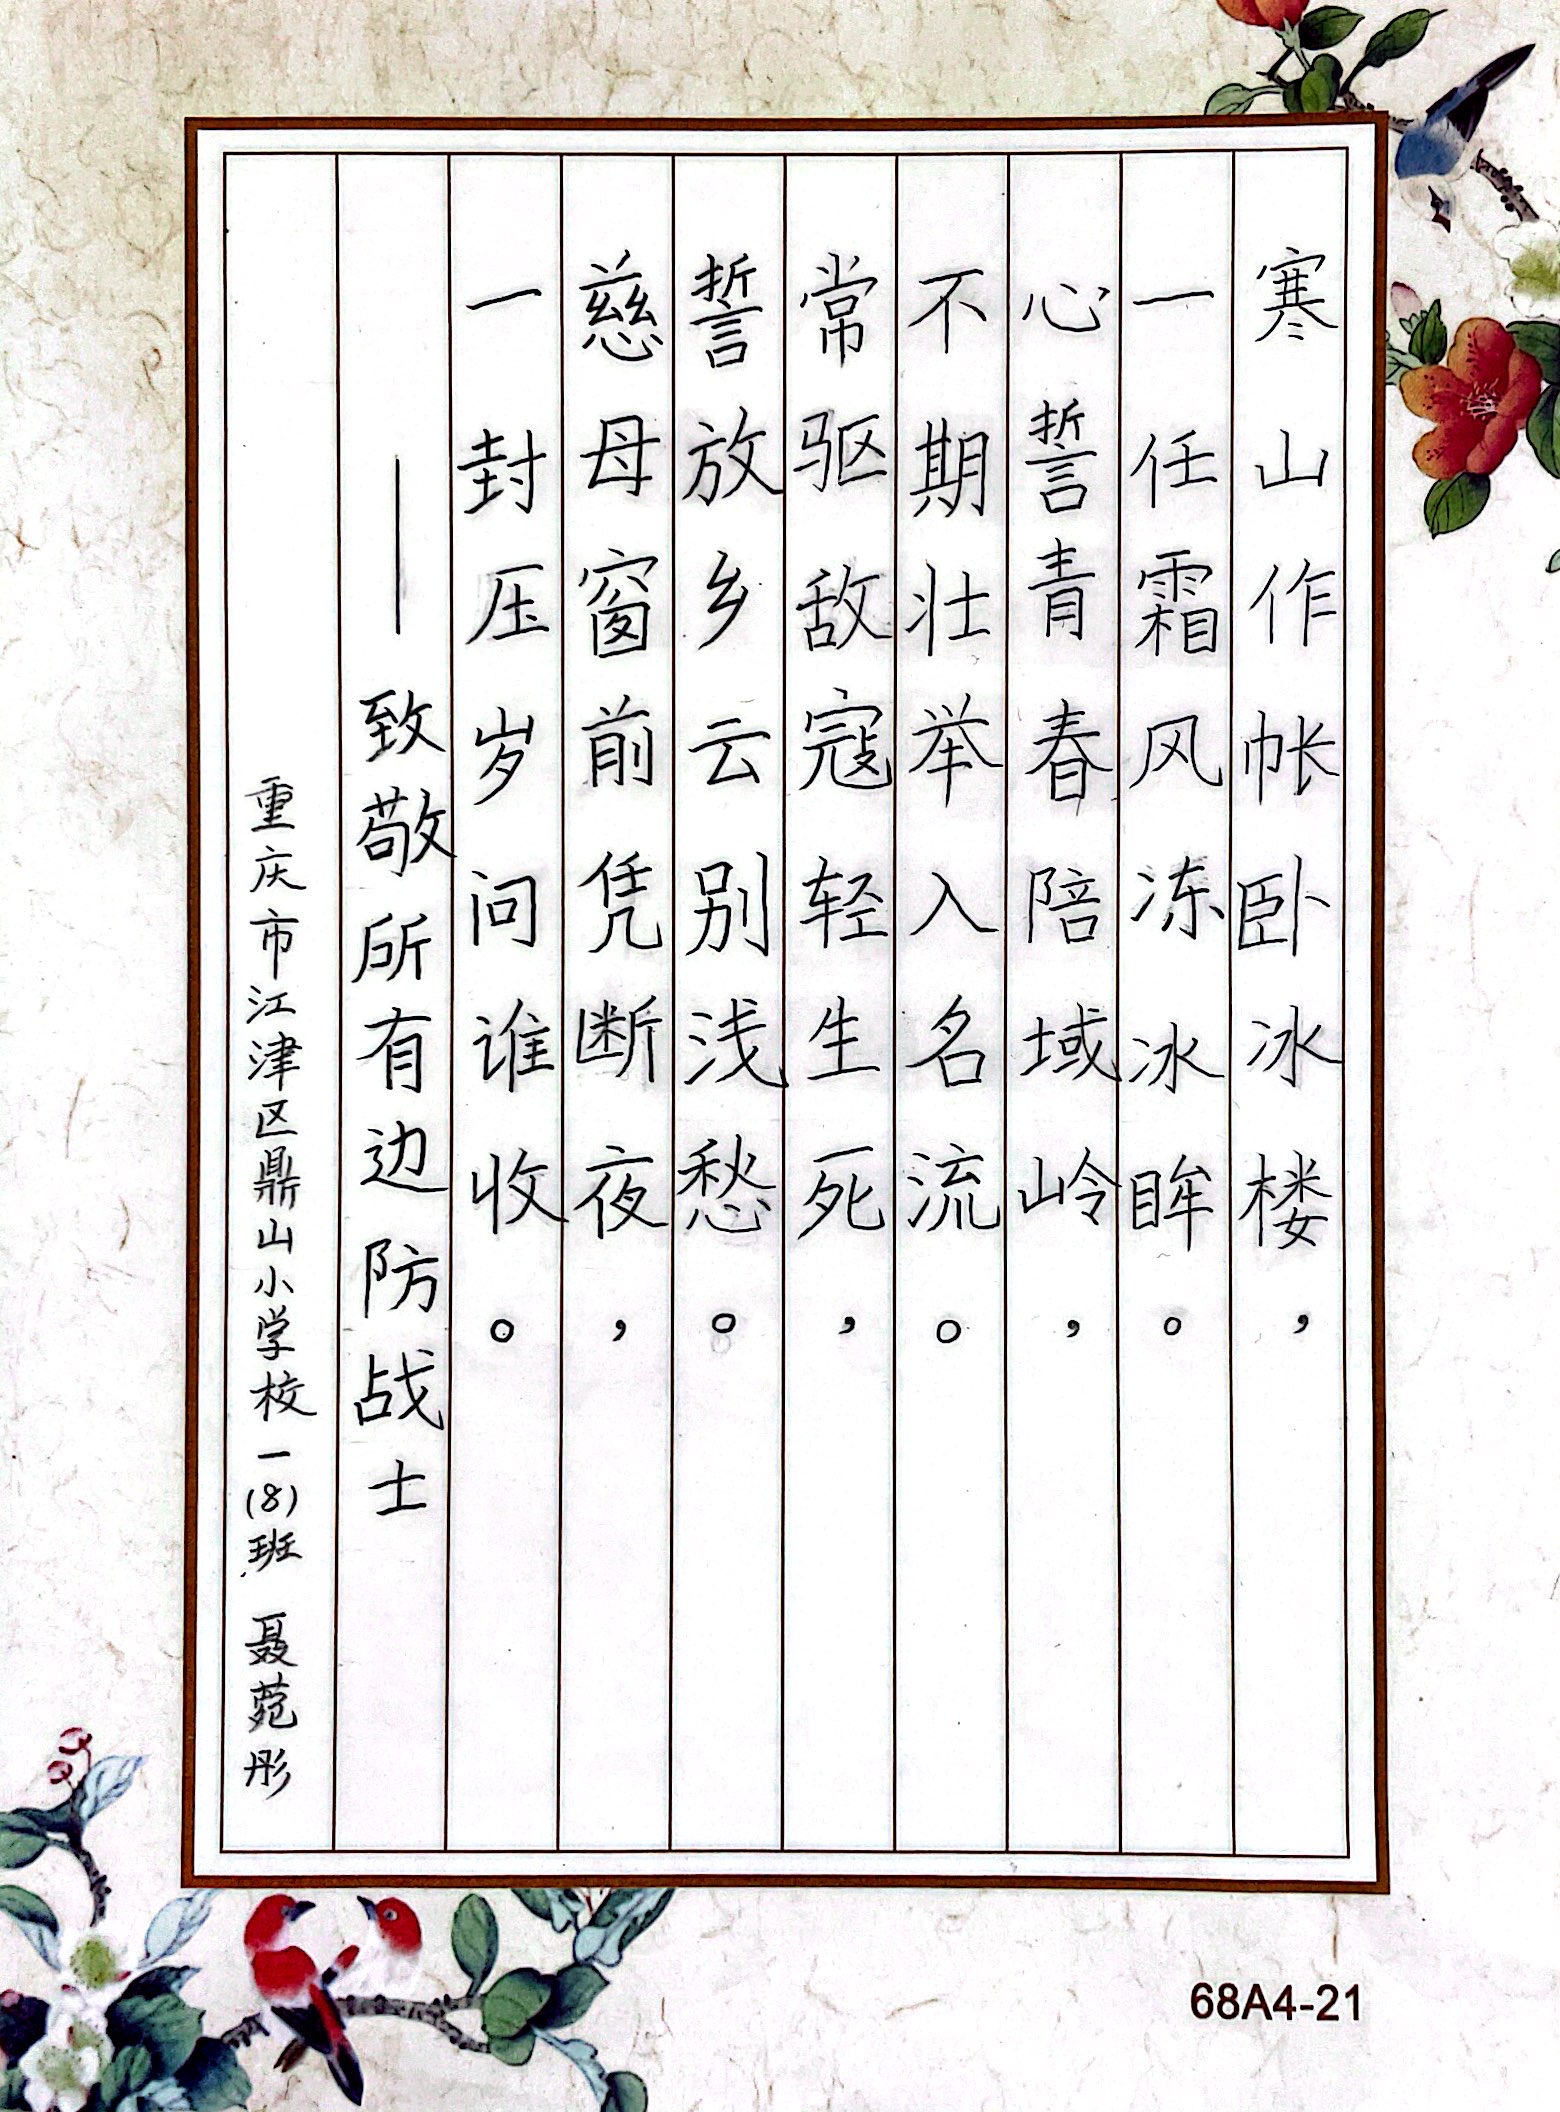 寒山作帐卧冰楼，
一任霜风冻冰眸。
心誓青春陪域岭，
不期壮举入名流。
常驱敌寇轻生死，
誓放乡云别浅愁。
慈母窗前凭断夜，
一封压岁问谁收。
——致敬所有边防战士
重庆市江津区鼎山小学校一(8)班 聂菀彤
68A4-21